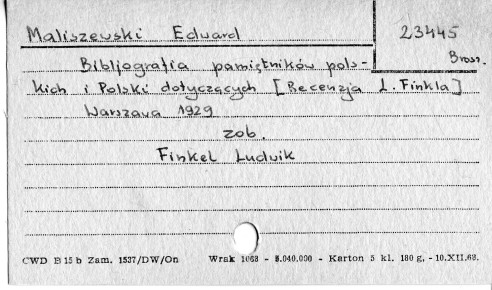 Maliszewski Edward
23445
Brosz.
Bibljografia pamiętników pols-
kich i Polski dotyczących [Recenzja L. Finkla]
Warszawa 1929
zob.
Finkel Ludwik
CWD B 15 b Zam. 1537/DW/On Wrak 1068 - 5.040.000 - Karton 5 kl. 180 g. - 10.XII.68.